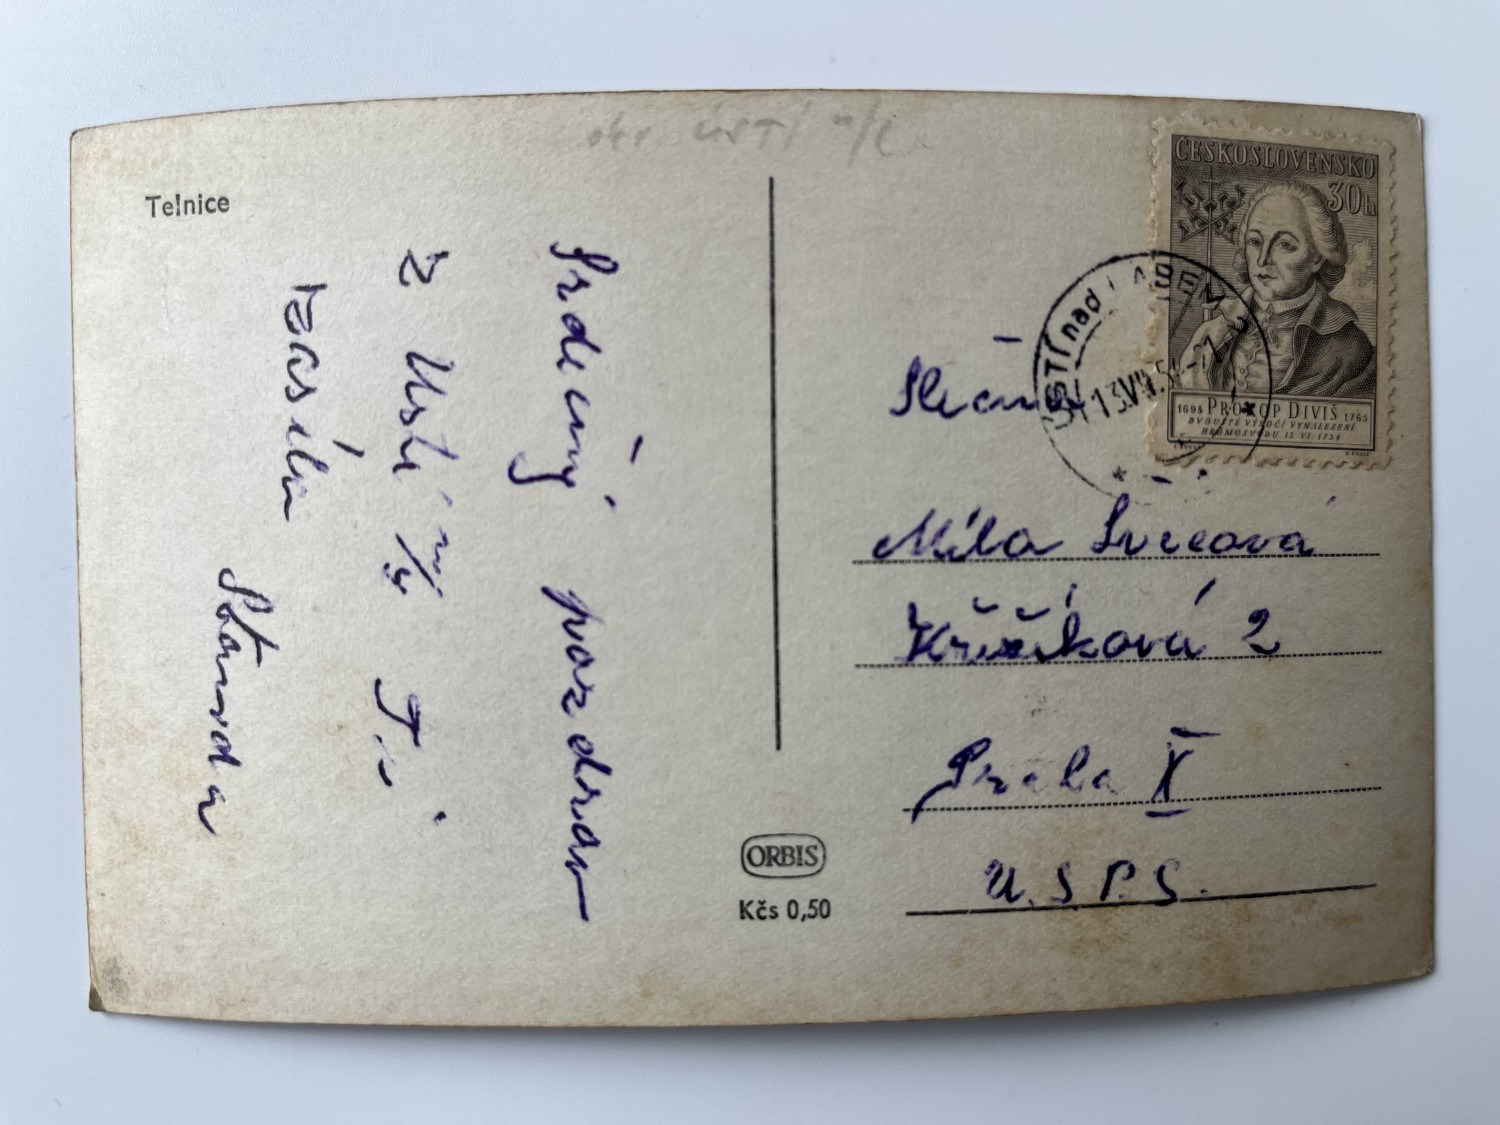 okr. ÚSTÍ n/L
Telnice
Srdečný pozdrav
z Ústí n/L Ti
zasílá
Standa
ORBIS
Kčs 0,50
ČESKOSLOVENSKO
30h
1698 PROKOP DIVIŠ 1765
DVOUSTÉ VÝROČÍ VYNALEZENÍ
HROMOSVODU 15.VI.1754
ÚSTÍ nad LABEM 2
Slečna
Míla
Křižíková 2
Praha X
U.S.P.S.